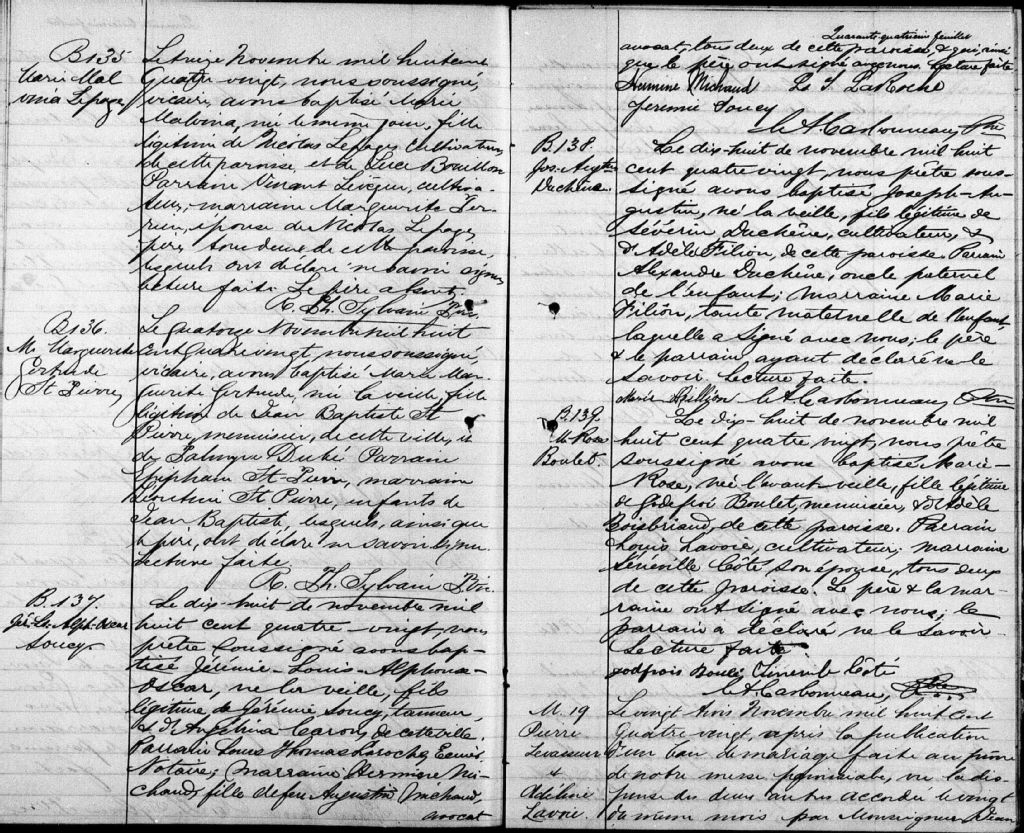 B135
Marie Mal
vina Lepage
Le treize Novembre mil huit cent
quatre vingt, nous soussigné,
vicaire, avons baptisé Marie
Malvina, née le même jour, fille
légitime de Nicolas Lepage, cultivateur
de cette paroisse, et de Luce Bouillon
Parrain Vincent Levêque, cultiva-
teur, marraine Marguerite
épouse de Nicolas Lepage
père, tous deux de cette paroisse,
lesquels ont déclaré ne savoir signer
Lecture faite. Le père absent,
R. Ph. Sylvain Ptre.
B136.
M. Marguerite
Gertrude
St Pierre
Le quatorze Novembre mil huit
cent quatre vingt, nous soussigné,
vicaire, avons baptisé Marie Mar-
guerite Gertrude, née la veille, fille
légitime de Jean Baptiste St
Pierre, menuisier, de cette ville, et
de Palmyre Dubé Parrain
Epiphane St-Pierre, marraine
St Pierre, enfants de
Jean Baptiste, lesquels, ainsi que
le père, ont déclaré ne savoir signer.
Lecture faite.
R. Ph. Sylvain Ptre.
B. 137.
Jér-Ls-Alph-Oscar
Soucy
Le dix-huit de novembre mil
huit cent quatre-vingt nous
prêtre soussigné avons bap-
tisé Jérémie-Louis-Alphonse-
Oscar, né la veille, fils
légitime de Jérémie Soucy, tanneur,
& d'Angélina Caron, de cette ville.
Parrain Louis Thomas Laroche, Ecuier
Notaire; marraine Hermine Mi-
chaud, fille de feu Augustin Michaud,
avocat
Quarante quatrième feuillet
avocat, tous deux de cette paroisse, & qui, ainsi
que le père ont signé avec nous. Lecture faite
Hermine Michaud L. T. LaRoche
Jérémie Soucy
A. Carbonneau, Ptre
B138.
Jos-Augte-
Duchêne.
Le dix-huit de novembre mil huit
cent quatre vingt, nous prêtre sous-
signé avons baptisé Joseph-Au-
gustin, né la veille, fils légitime de
Séverin Duchêne, cultivateur, &
d'Adèle Filion, de cette paroisse. Parrain
Alexandre Duchêne, oncle paternel
de l'enfant; marraine Marie
Filion, tante maternelle de l'enfant,
laquelle a signé avec nous; le père
& le parrain ayant déclaré ne le
savoir. Lecture faite.
Marie Fillion A. Carbonneau, Ptre
B.139.
M-Rose
Boulet.
Le dix-huit de novembre mil
huit cent quatre vingt, nous prêtre
soussigné avons baptisé Marie-
Rose, née l'avant veille, fille légitime
de Godefroi Boulet, menuisier, & d'Adèle
Boisbriand, de cette paroisse. Parrain
Louis Lavoie, cultivateur; marraine
Côté, son épouse, tous deux
de cette paroisse. Le père & la mar-
raine ont signé avec nous; le
parrain a déclaré ne le savoir.
Lecture faite.
Godfrois Boulé, Côté
A. Carbonneau, Ptre
M. 19
Pierre
Levasseur
&
Adéline
Lavoie.
Le vingt trois Novembre mil huit cent
quatre vingt, après la publication
d'un ban de mariage faite au prône
de notre messe paroissiale, vu la dis-
pense des deux autres accordée le vingt
du même mois par Monseigneur Jean